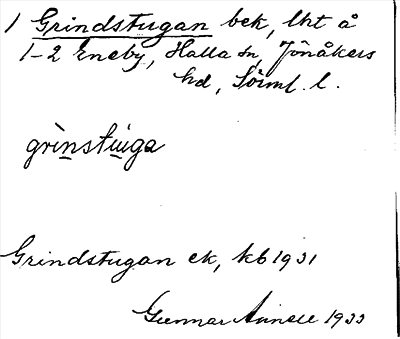 1 Grindstugan bek, lht å
1-2 Eneby, Halla sn, Jönåkers
hd, Sörml. l.
grìnstuga
Grindstugan ek, kb 1931
Gunnar 1933